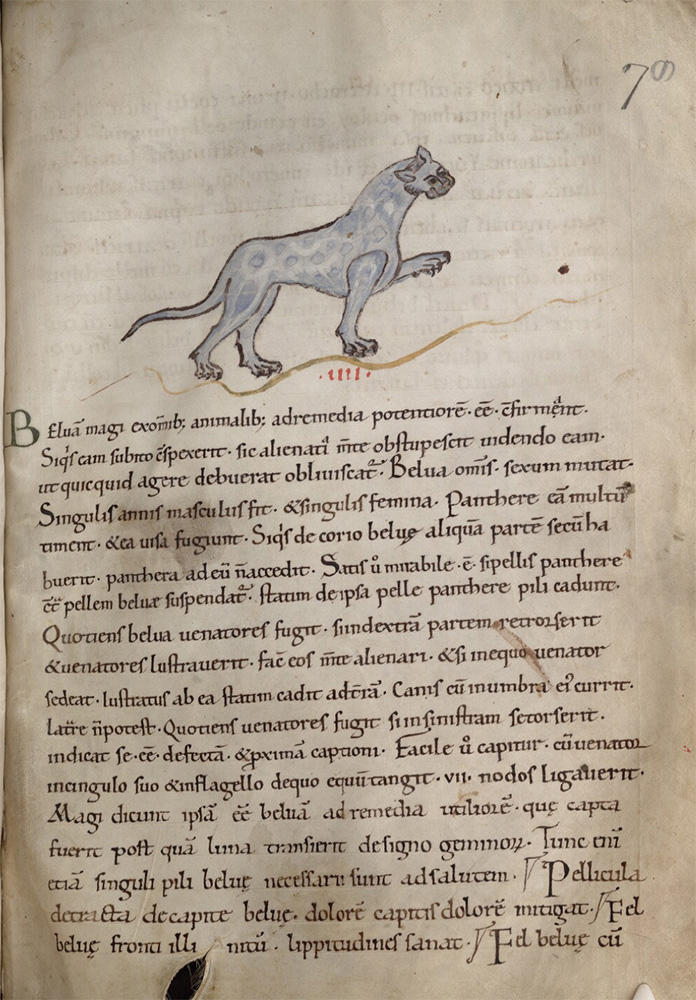 70
·IIII·
Beluā magi exoīnib; animalib; adremedia potentiorē· eē· c̄firmēnt·
Siq̇s eam subito c̄spexerit· sic alienati mēte obstupescit uidendo eam·
ut quicquid agere debuerat obliuiscat᷑· Belua om̄is· sexum mutat·
Singulis annis masculus fit· &singulis femina· Panthere eā multū
timent· &ea uisa fugiunt· Siq̇s de corio beluę aliquā partē secū ha
buerit· panthera ad eū n̄accedit· Satis ů mirabile· ē· si pellis panthere
c̄t̄ pellem beluæ suspendat᷑· statim de ipsa pelle panthere pili cadunt·
Quotiens belua uenatores fugit· si indextrā partem retrorserit
&uenatores lustrauerit· fac̄ eos mēte alienari· &si inequo uenator
sedeat· lustratus ab ea statim cadit adt̄rā· Canis cū inumbra ei᷒ currit·
latr̄e n̄potest· Quotiens uenatores fugit si insinistram se torserit·
indicat se· eē· defectā· &pximā captioni· Facile ů capitur· cū uenator
incingulo suo &inflagello dequo equū tangit· vii· nodos ligauerit·
Magi dicunt ipsā eē beluā ad remedia utiliorē· quę capta
fuerit post quā luna transierit designo geminoꝝ· Tunc eni
etiā singuli pili beluę necessarii sunt adsalutem· Pellicula
detracta decapite beluę· dolorē capitis dolorē mitigat· Fel
beluę fronti illinitū· lippitudines sanat· Fel beluę cū